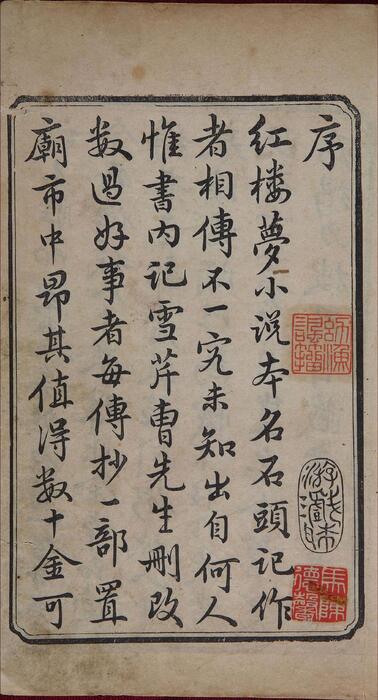 序
红楼夢小说本名石頭记作
者相傳不一究未知出自何人
惟書内记雪芹曹先生删改
数过好事者每傳抄一部置
廟市中昂其值得数十金可